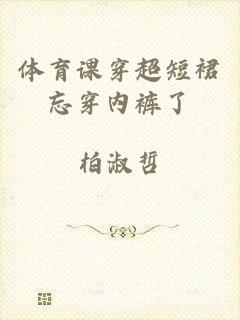 体育课穿超短裙
忘穿内裤了
柏淑哲